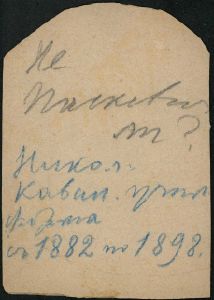 Не
Паскевич
ли?
Никол.
Кавал. учил.
форма
съ 1882 по 1898.